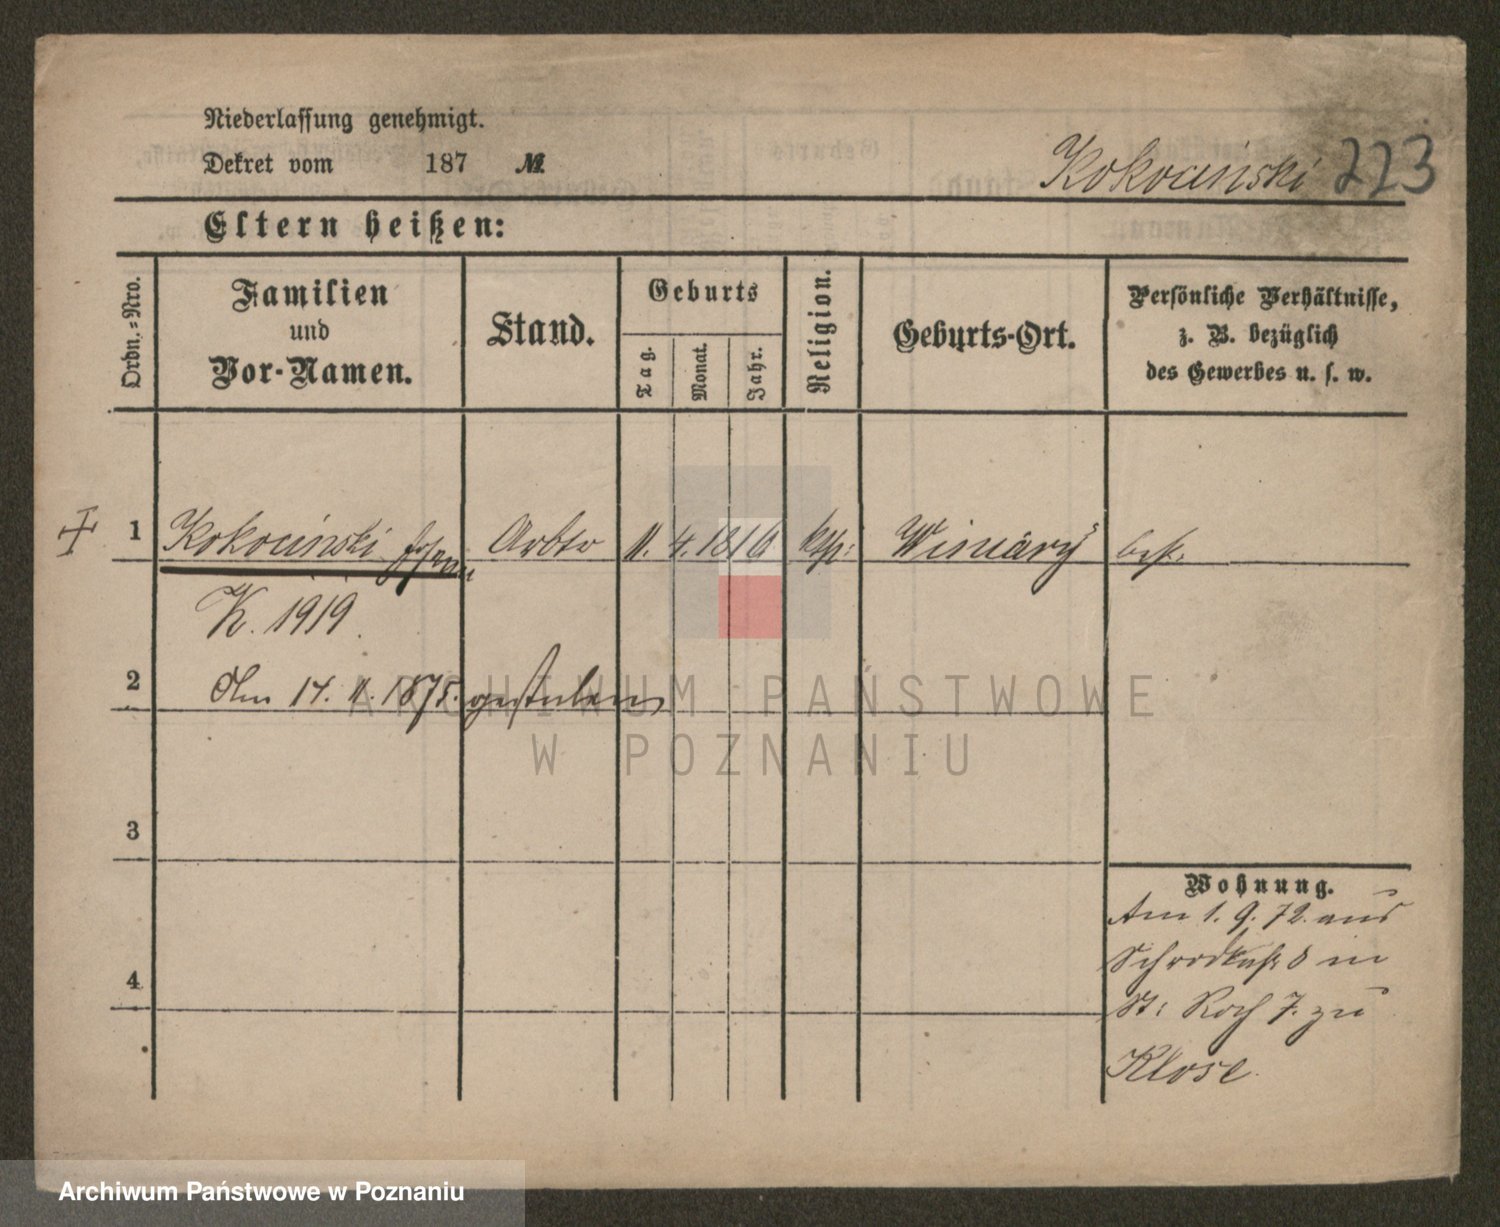 Niederlassung genehmigt.
Dekret vom 187 №
Kokociński 223
Eltern heißen:
Ordn.-Nro.
Familien
und
Vor-Namen.
Stand.
Geburts
Tag.
Monat.
Jahr.
Religion.
Geburts-Ort.
Persönliche Verhältnisse,
z. B. bezüglich
des Gewerbes u. s. w.
1 Kokociński Arbtr 11. 4. 1816 kth: Winiary
K. 1919.
2 Am 14. 11. 1875. gestorben
3
4
Wohnung.
Am 1. 9. 72. aus
Schrodkastr 8 in
St: Roch 7. zu
Klose.
ARCHIWUM PAŃSTWOWE
W POZNANIU
Archiwum Państwowe w Poznaniu